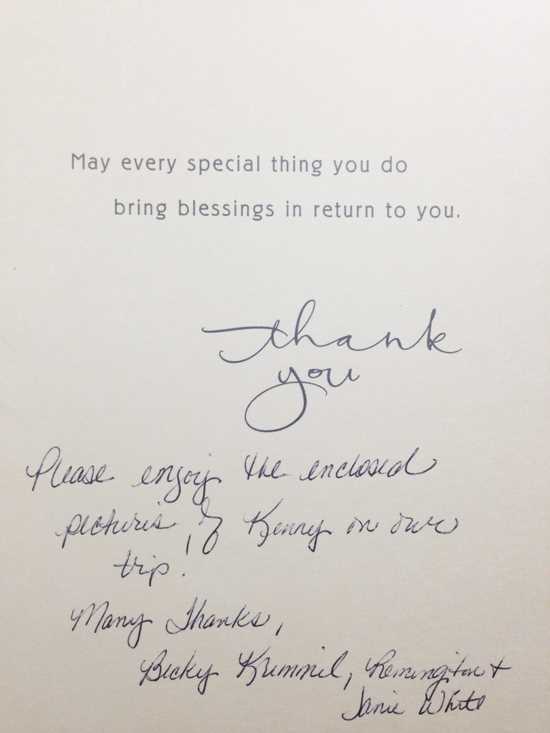 May every special thing you do
bring blessings in return to you.
thank
you
Please enjoy the enclosed
pictures of Kenny on our
trip!
Many Thanks,
Becky Krimmel, Remington +
Janie White